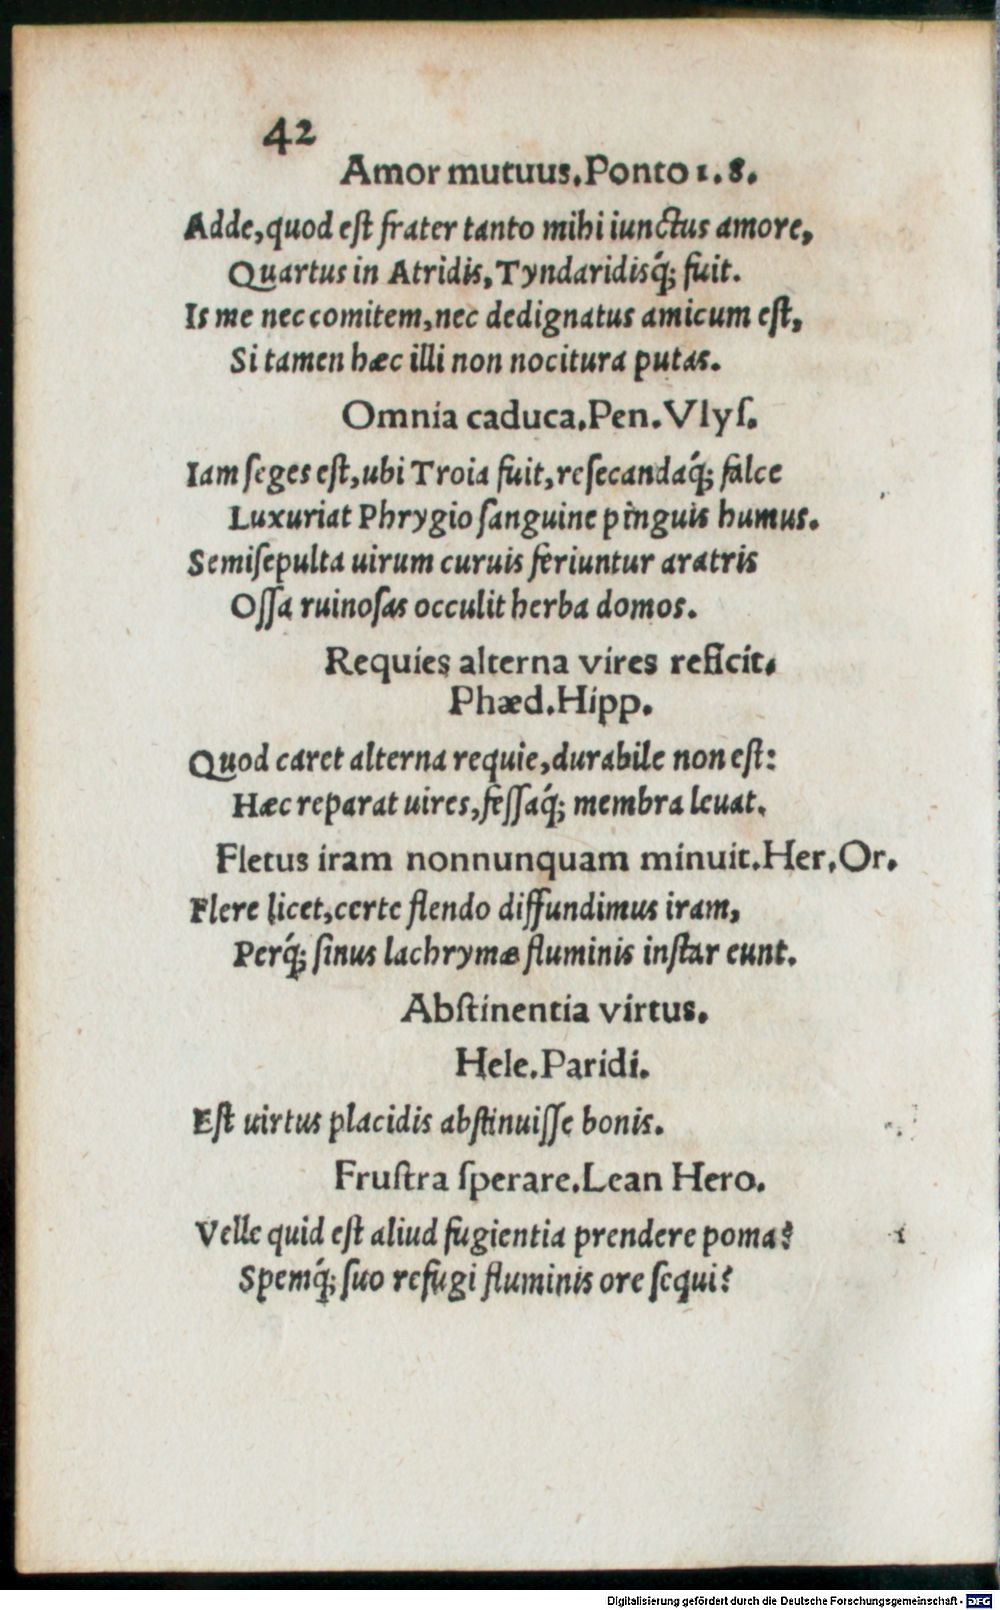 42
Amor mutuus. Ponto 1. 8.
Adde, quod est frater tanto mihi iunctus amore,
Quartus in Atridis, Tyndaridisq́; fuit.
Is me nec comitem, nec dedignatus amicum est,
Si tamen hæc illi non nocitura putas.
Omnia caduca. Pen. Vlyſ.
Iam ſeges eſt, ubi Troia fuit, reſecandaq́; falce
Luxuriat Phrygio ſanguine pinguis humus.
Semiſepulta uirum curuis feriuntur aratris
Oſſa ruinoſas occulit herba domos.
Requies alterna vires reficit.
Phæd. Hipp.
Quod caret alterna requie, durabile non eſt:
Hæc reparat uires, feſſaq́; membra leuat.
Fletus iram nonnunquam minuit. Her. Or.
Flere licet, certe flendo diffundimus iram,
Perq́; ſinus lachrymæ fluminis inſtar eunt.
Abſtinentia virtus.
Hele. Paridi.
Eſt uirtus placidis abſtinuiſſe bonis.
Fruſtra ſperare. Lean Hero.
Velle quid eſt aliud fugientia prendere poma?
Spemq́; ſuo refugi fluminis ore ſequi?
Digitalisierung gefördert durch die Deutsche Forschungsgemeinschaft - DFG